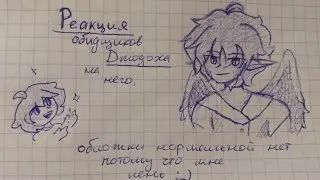 Реакция
обидщиков
Дмодоха
на
него.
обложки нормальной нет
потому что мне
лень :-)